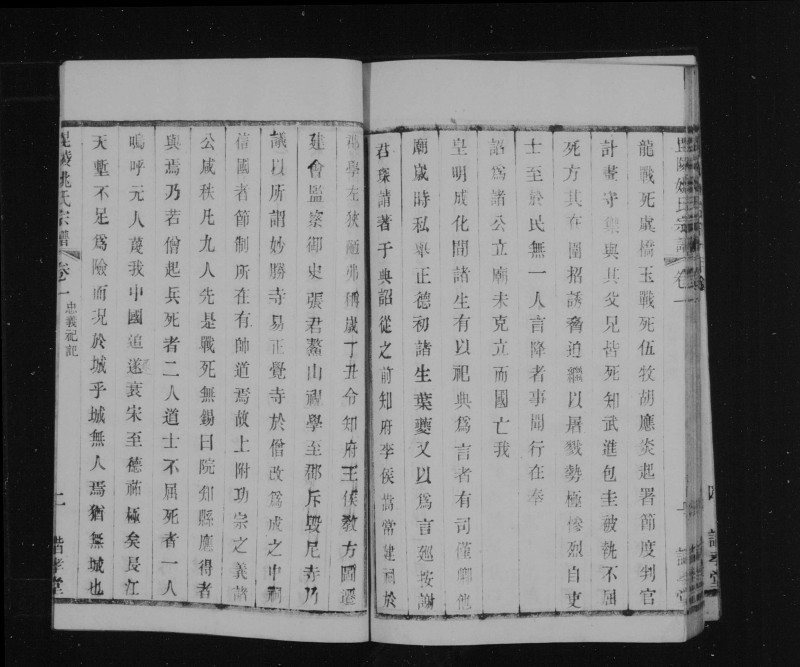 龍戰死虞橋玉戰死伍牧胡應炎起署節度判官
計畫守禦與其父兄皆死知武進包圭被執不屈
死方其在圍招誘脅迫繼以屠戮勢極慘烈自吏
士至於民無一人言降者事聞行在奉
詔為諸公立廟未克立而國亡我
皇明成化間諸生有以祀典為言者有司僅鄉他
廟歲時私舉正德初諸生葉夔又以為言廵按謝
君琛請著于典詔從之前知府李侯嵩常建祠於
郡學左狹陋弗稱歲丁丑今知府王侯教方圖遷
建會監察御史張君鰲山視學至郡斥毀尼寺乃
議以所謂妙勝寺易正覺寺於僧改為成之中祠
信國者節制所在有帥道焉故上附功宗之義諸
公咸秩凡九人先是戰死無錫曰阮知縣應得者
與焉乃若僧起兵死者二人道士不屈死者一人
嗚呼元人蔑我中國追遂衰宋至德祐極矣長江
天塹不足為險而况於城乎城無人焉猶無城也
毘陵姚氏宗譜
卷一
忠義祀記
二
諧孝堂